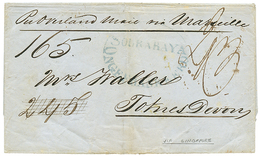 Per Overland Mail via Marseille
165
SOERABAYA
Mrs Waller
245
Totnes Devon